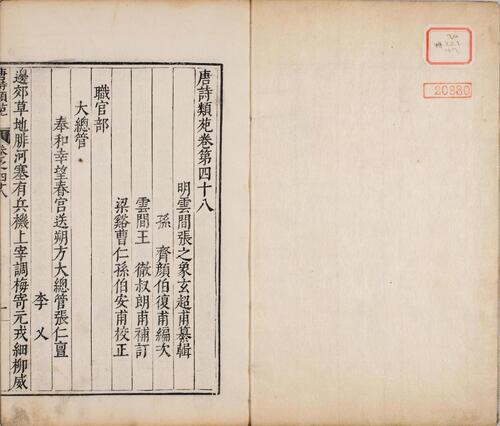 唐詩類苑卷第四十八
明雲間張之象玄超甫纂輯
孫 齊顏伯復甫編次
雲間王 徹叔朗甫補訂
梁谿曹仁孫伯安甫校正
職官部
大總管
奉和幸望春宮送朔方大總管張仁亶
李乂
邊郊草地腓河塞有兵機上宰調梅寄元戎細柳威
唐詩類苑
卷之四十八
一
20880